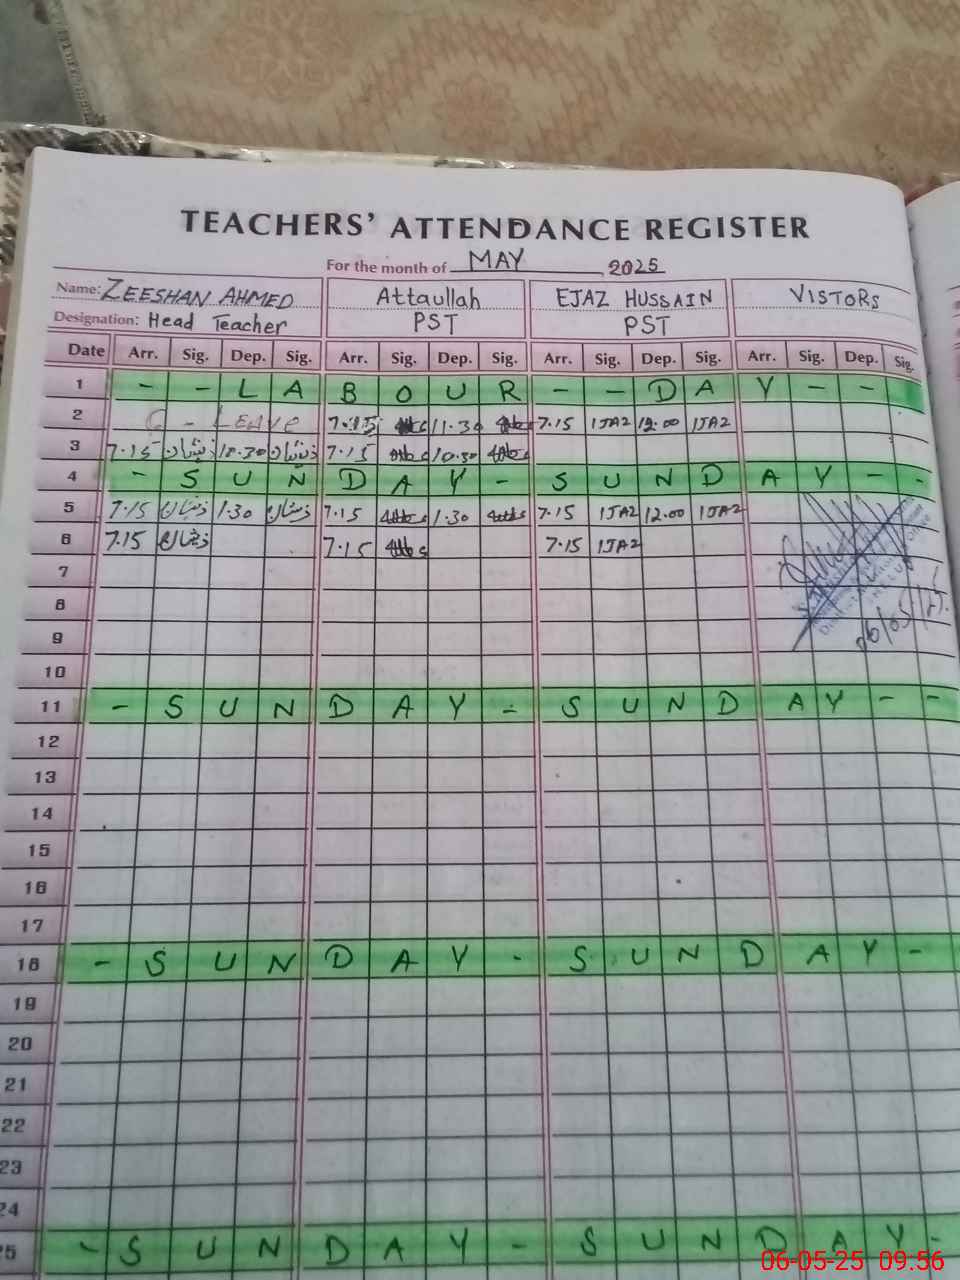 TEACHERS' ATTENDANCE REGISTER
For the month of MAY , 2025
Name: ZEESHAN AHMED Attaullah EJAZ HUSSAIN VISTORS
Designation: Head Teacher PST PST
Date Arr. Sig. Dep. Sig. Arr. Sig. Dep. Sig. Arr. Sig. Dep. Sig. Arr. Sig. Dep. Sig.
1 - - L A B O U R - - D A Y - - -
2 C - LEAVE 7.15 11.30 7.15 IJAZ 12.00 IJAZ
3 7.15 ذیشان 10.30 ذیشان 7.15 10.30
4 - S U N D A Y - S U N D A Y - -
5 7.15 ذیشان 1.30 ذیشان 7.15 1.30 7.15 IJAZ 12.00 IJAZ
6 7.15 ذیشان 7.15 7.15 IJAZ
7
8
9
06/05/25
10
11 - S U N D A Y - S U N D A Y - -
12
13
14
15
16
17
18 - S U N D A Y - S U N D A Y -
19
20
21
22
23
24
25 - S U N D A Y - S U N D A Y -
06-05-25 09.56